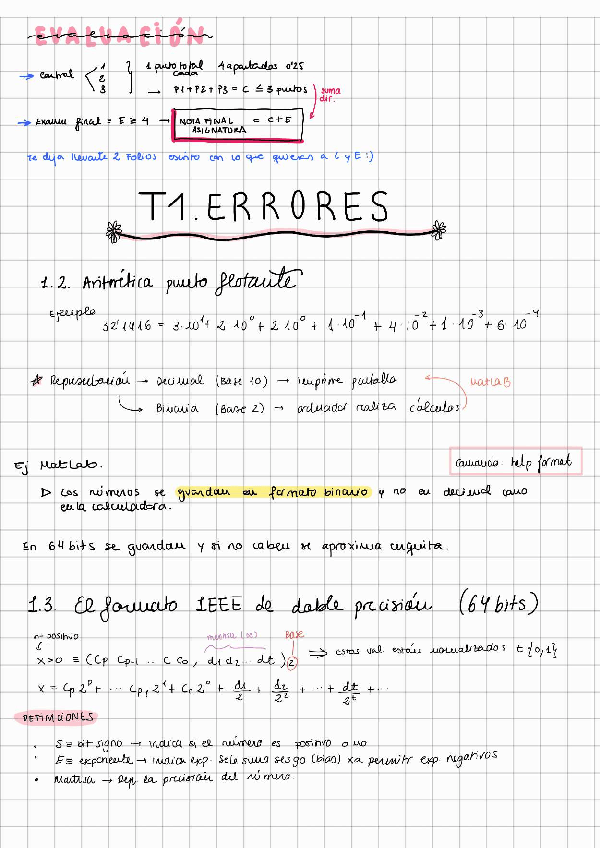 EVALUACIÓN
→ Control < 1 2 3 } 1 punto total cada 4 apartados 0'25
→ P1+P2+P3 = C ≤ 3 puntos
suma dir.
→ Examen final = E ≥ 4 → NOTA FINAL ASIGNATURA = C+E
Te deja llevarte 2 Folios escrito con lo que quieras a C y E :)
T1. ERRORES
1.2. Aritmética punto flotante
Ejemplo
32'1416 = 3·10¹ + 2·10⁰ + 2·10⁰ + 1·10⁻¹ + 4·10⁻² + 1·10⁻³ + 6·10⁻⁴
* Representación → Decimal (Base 10) → imprime pantalla
MatLaB
→ Binaria (Base 2) → ordenador realiza cálculos
Ej MatLab.
comando: help format
▷ Los números se guardan en formato binario y no en decimal como
en la calculadora.
En 64 bits se guardan y si no caben se aproxima
1.3. El formato IEEE de doble precisión (64 bits)
nº positivo
Base
x>0 ≡ (Cp Cp-1 ... C C0, d1 d2 ... dt)2 ⇒ estos val. están normalizados t {0,1}
x = Cp 2^p + ... Cp1 2¹ + C0 2⁰ + d1/2 + d2/2² + ... + dt/2^t + ...
DEFINICIONES
· S ≡ bit signo → indica si el número es positivo o no
· E ≡ exponente → indica exp. Se le suma sesgo (bias) xa permitir exp negativos
· Mantisa → Rep. la precisión del número